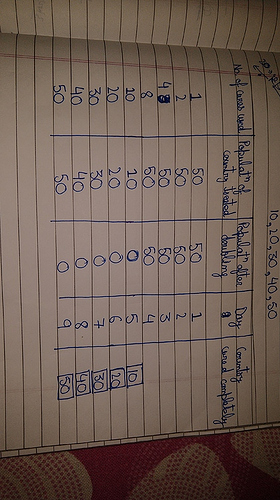 10, 20, 30, 40, 50
No. of cures used Populatⁿ of Populatⁿ after Day Country
country doubling cured completely
1 50 50 1
2 50 50 2
4 50 50 3
8 50 50 4
10 10 0 5 10
20 20 0 6 20
30 30 0 7 30
40 40 0 8 40
50 50 0 9 50